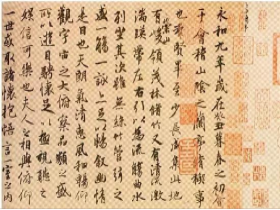 永和九年歲在癸丑暮春之初會
于會稽山陰之蘭亭脩稧事
也群賢畢至少長咸集此地
有崇山峻領茂林脩竹又有清流激
湍暎帶左右引以為流觴曲水
列坐其次雖無絲竹管弦之
盛一觴一詠亦足以暢敘幽情
是日也天朗氣清惠風和暢仰
觀宇宙之大俯察品類之盛
所以遊目騁懷足以極視聽之
娛信可樂也夫人之相與俯仰
一世或取諸懷抱悟言一室之內